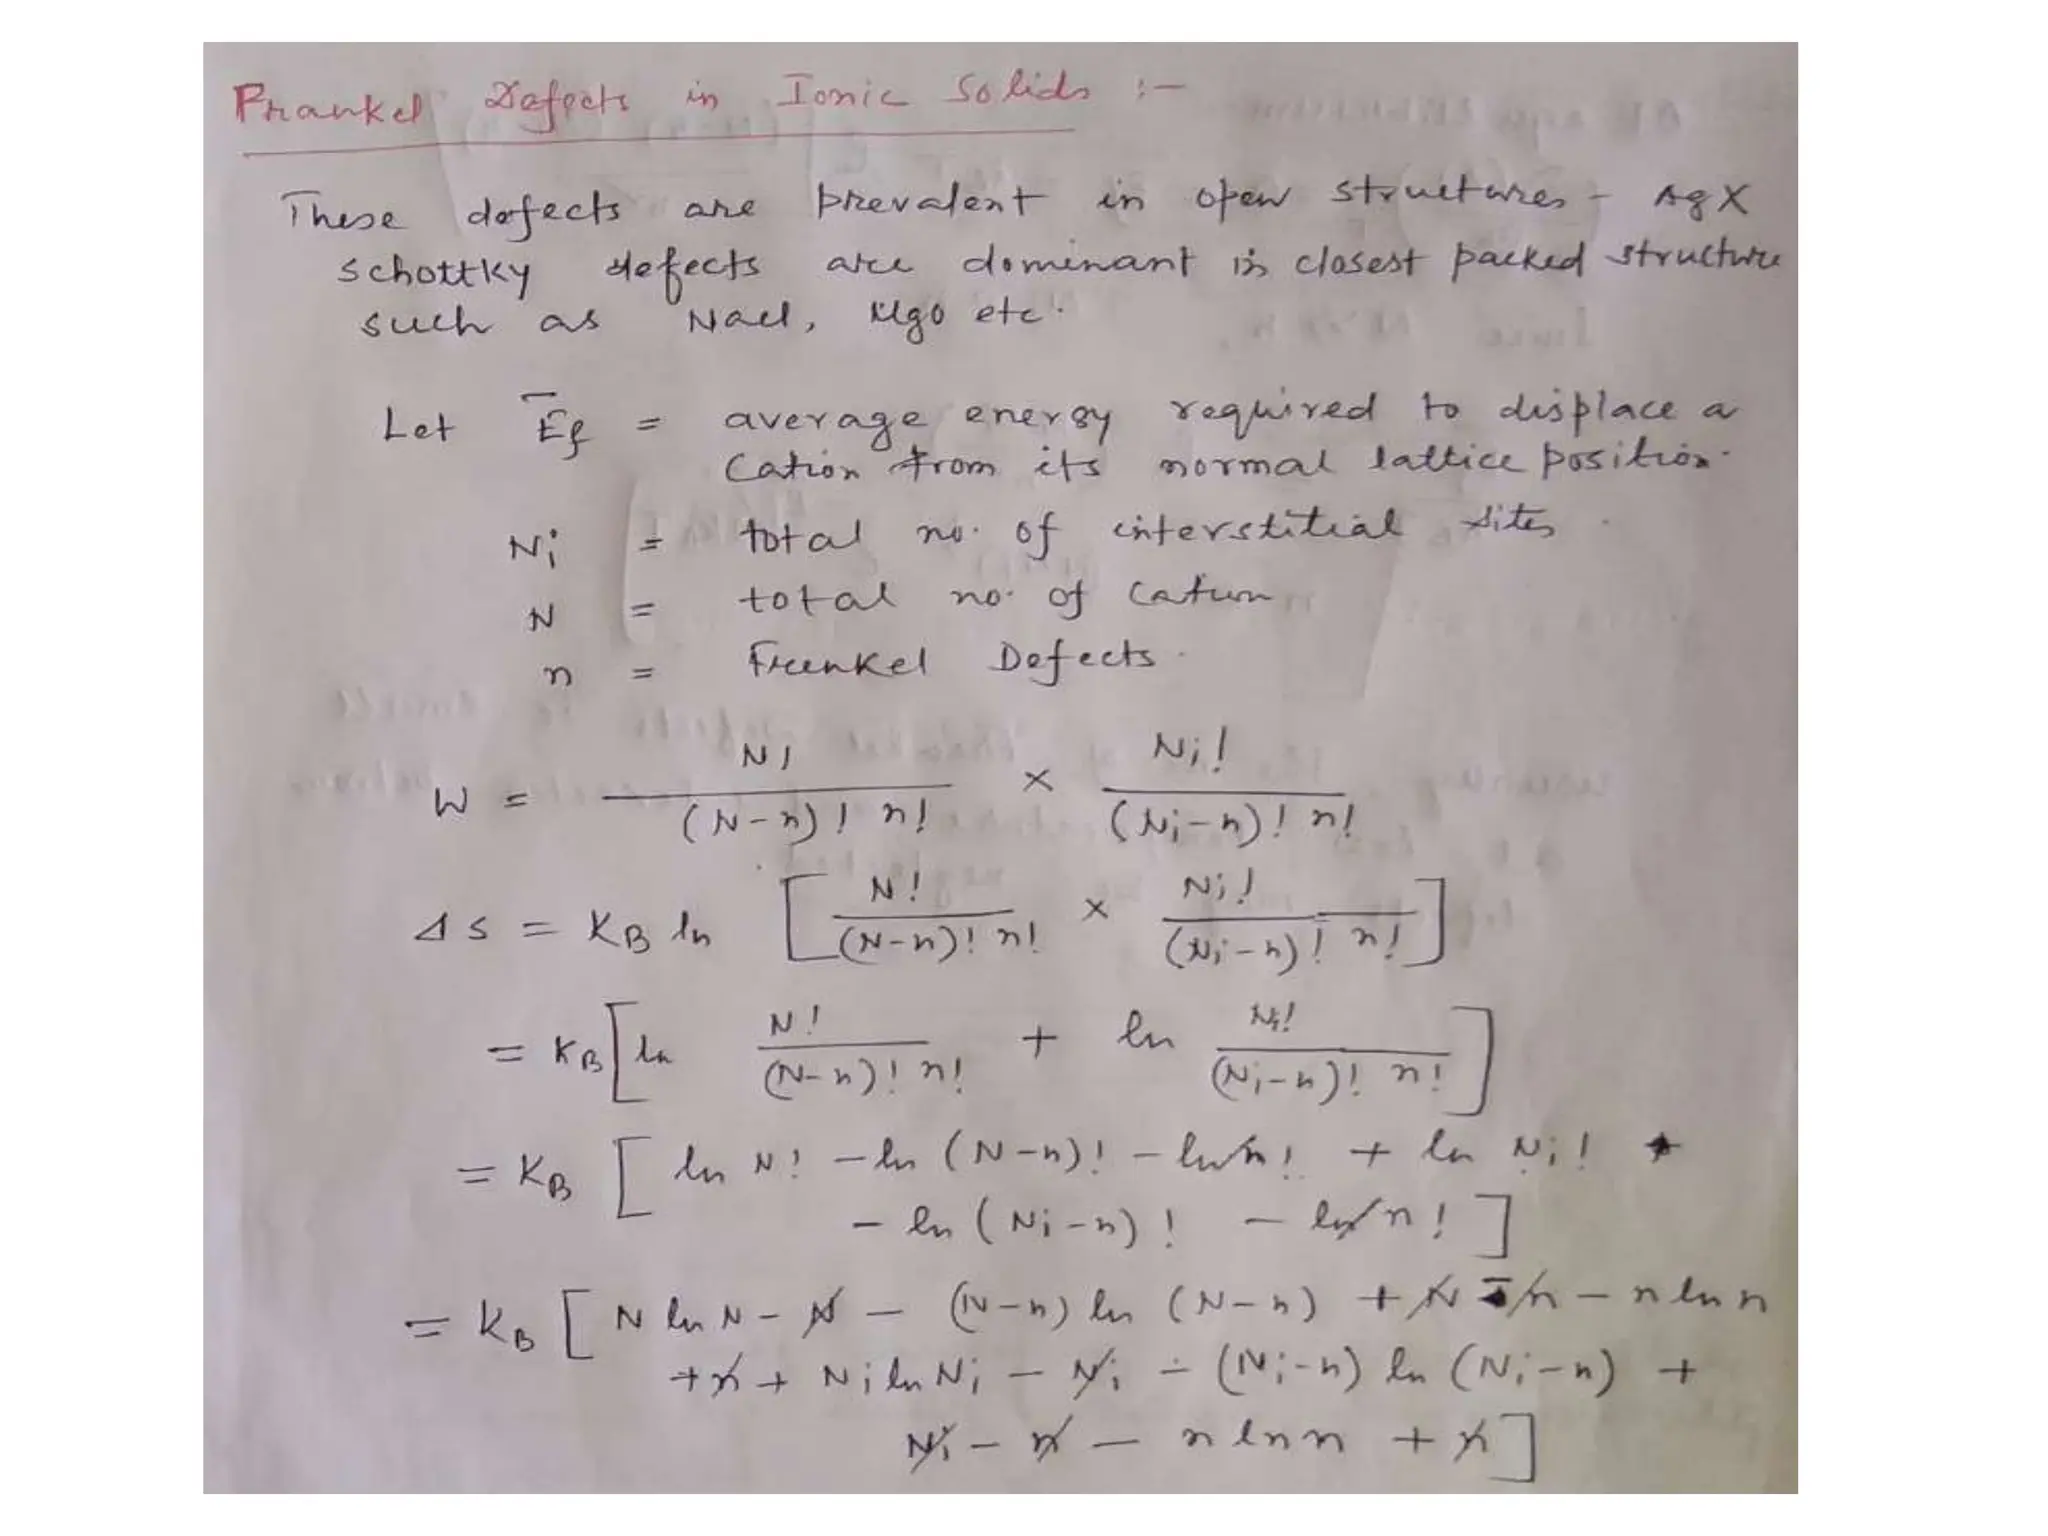 Frankel Defects in Ionic Solids :-
These defects are prevalent in open structures - AgX
Schottky defects are dominant in closest packed structure
such as NaCl, MgO etc.
Let Ēf = average energy required to displace a
Cation from its normal lattice position.
Ni = total no. of interstitial sites
N = total no. of Cation
n = Frenkel Defects.
W = N! / (N-n)! n! × Ni! / (Ni-n)! n!
ΔS = KB ln [ N! / (N-n)! n! × Ni! / (Ni-n)! n! ]
= KB [ ln N! / (N-n)! n! + ln Ni! / (Ni-n)! n! ]
= KB [ ln N! - ln (N-n)! - ln n! + ln Ni!
- ln (Ni-n)! - ln n! ]
= KB [ N ln N - N - (N-n) ln (N-n) + N - n - n ln n
+ n + Ni ln Ni - Ni - (Ni-n) ln (Ni-n) +
Ni - n - n ln n + n ]